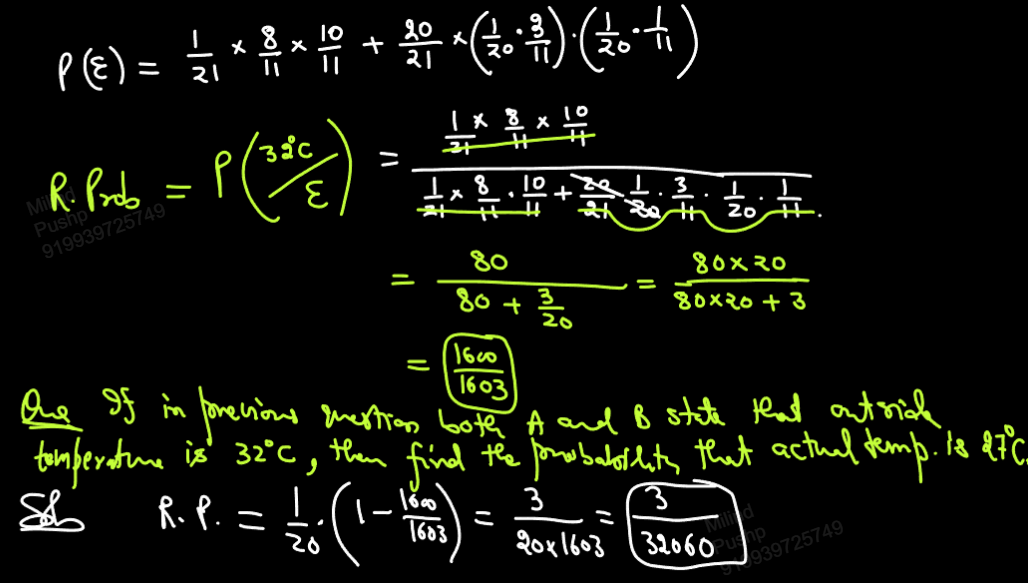 P(ε) = 1/21 × 8/11 × 10/11 + 20/21 × (1/20 · 3/11) · (1/20 · 1/11)
R. Prob = P(32°C/ε) = (1/21 × 8/11 × 10/11) / (1/21 × 8/11 · 10/11 + 20/21 · 1/20 · 3/11 · 1/20 · 1/11).
= 80 / (80 + 3/20) = (80×20) / (80×20 + 3)
= 1600/1603
Que If in previous question both A and B state that outside
temperature is 32°C, then find the probability that actual temp. is 27°C.
Sol R.P. = 1/20 · (1 - 1600/1603) = 3/(20×1603) = 3/32060
Milind
Pushp
919939725749
Milind
Pushp
919939725749